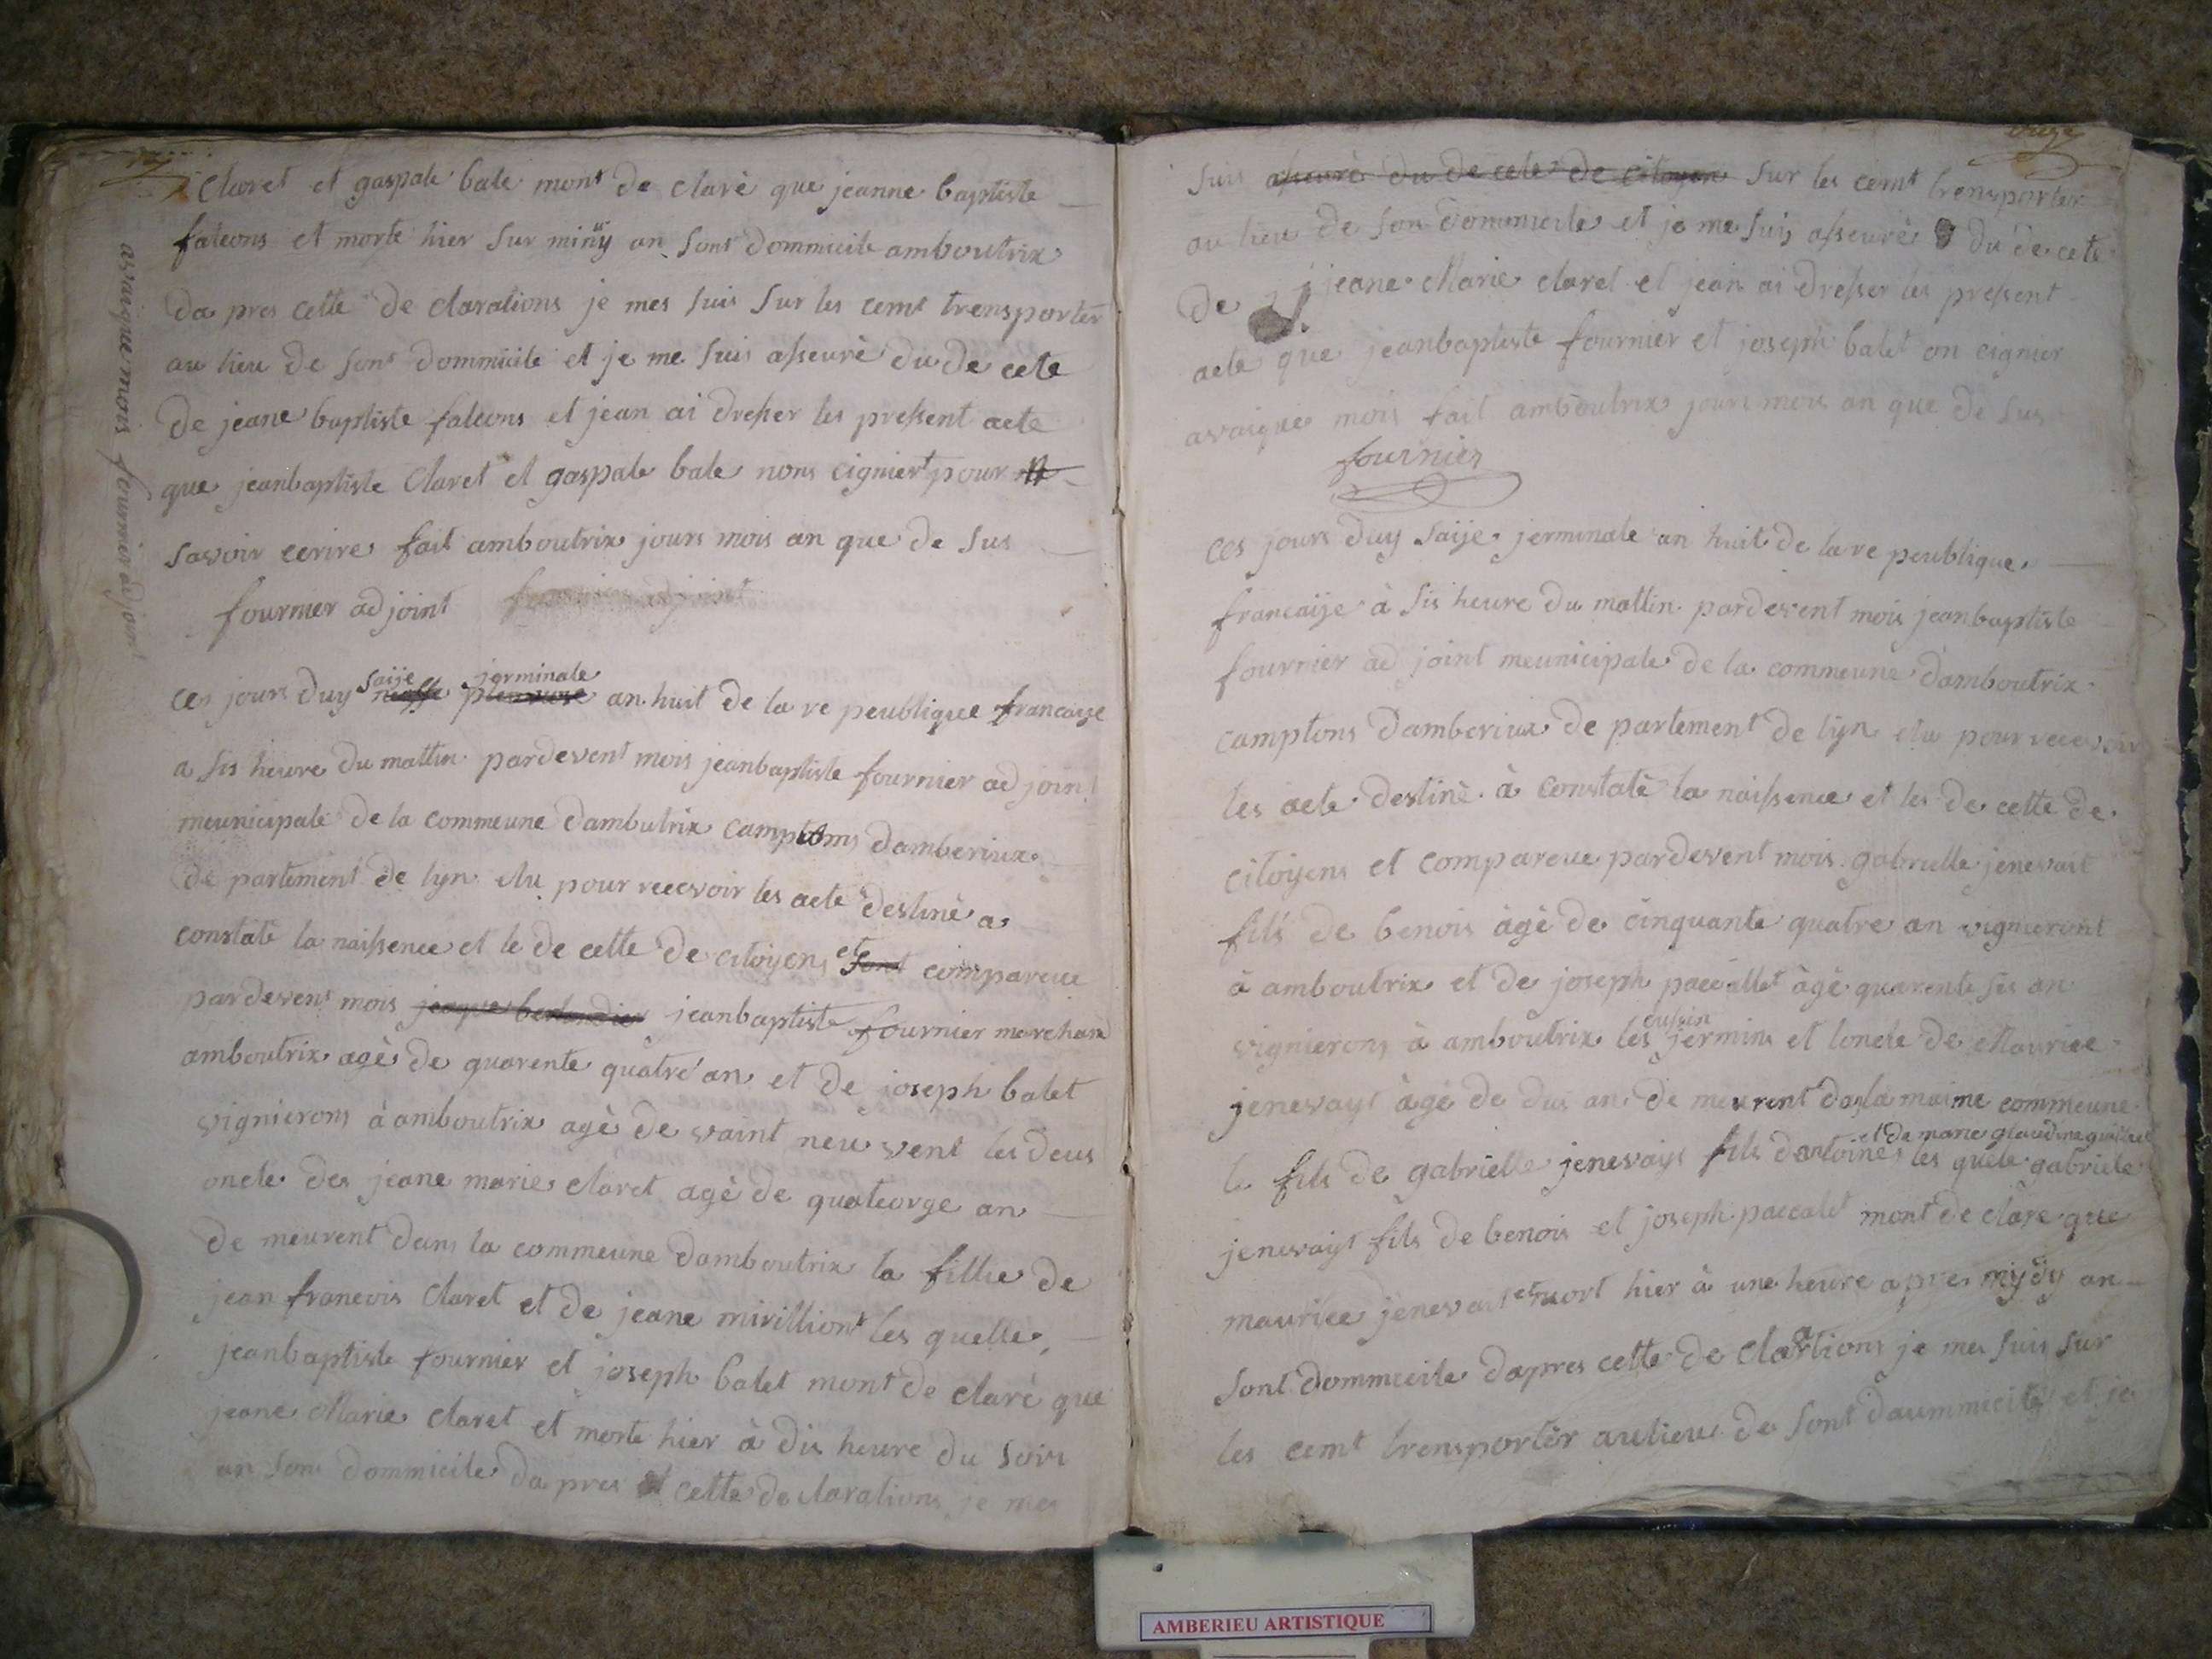 Claret et gaspale bale mont de claré que jeanne baptiste
falcons et morte hier sur minÿ an sont dommicile amboutrix
da pres cette de clarations je mes suis sur les cemt trensporter
au lieu de sont dommicile et je me suis asseuré du de cete
de jeane baptiste falcons et jean ai dresser les pressent acte
que jeanbaptiste Claret et gaspale bale nons cignier pour
savoir ecrire fait amboutrix jours mois an que de sus
fournier adjoint fournier adjoint
avaique mois fournier adjoint
ces jours duy nuffe pluviose saije jerminale an huit de la re peublique francaize
a sis heure du mattin pardevent mois jeanbaptiste fournier ad joint
meunicipale de la commeune dambutrix camptons damberiux
de partement de lyn elu pour recevoir les acte destiné a
constaté la naissence et le de cette de citoyens et sont compareue
pardevent mois jeanbaptiste fournier marchand
amboutrix agé de quarente quatre an et de joseph balet
vignierons à amboutrix agé de vaint neu vent les deus
oncle des jeane marie claret agé de quateorze an
de meurent dans la commeune damboutrix la fillie de
jean francois Claret et de jeane mirilliont les quelle
jeanbaptiste fournier et joseph balet mont de claré que
jeane Marie claret et morte hier à dis heure du soir
an sont dommicile da pres cette de clarations je mes
suis asseuré du de cete de citoyen sur les cemt trensporter
au lieu de son dommicile et je me suis asseuré du de cete
de jeane Marie claret et jean ai dresser les pressent
acte que jeanbaptiste fournier et joseph balet on cignier
avaique mois fait amboutrix jours mois an que de sus
fournier
ces jours duy saije jerminale an huit de la re peublique
francaije à sis heure du mattin pardevent mois jeanbaptiste
fournier ad joint meunicipale de la commeune damboutrix
camptons damberiux de partement de lyn elu pour recevoir
les acte destiné à constaté la naissence et les de cette de
citoyens et compareue pardevent mois gabrielle jenevait
fils de benois àgé de cinquante quatre an vignieront
à amboutrix et de joseph paccallet àgé quarente sis an
vignierons à amboutrix les cussin jermins et loncle de Maurice
jenevayt àgé de dus an de meurent dans la maime commeune
le fils de gabrielle jenevays fils dantoines et de marie glaudine les quele gabriele
jenevayt fils de benois et joseph paccalet mont de clare que
maurice jenevait et mort hier à une heure apres myÿy an
sont dommicile dapres cette de clarations je mes suis sur
les cemt trensportér au lieue de sont daummicile et je
AMBERIEU ARTISTIQUE